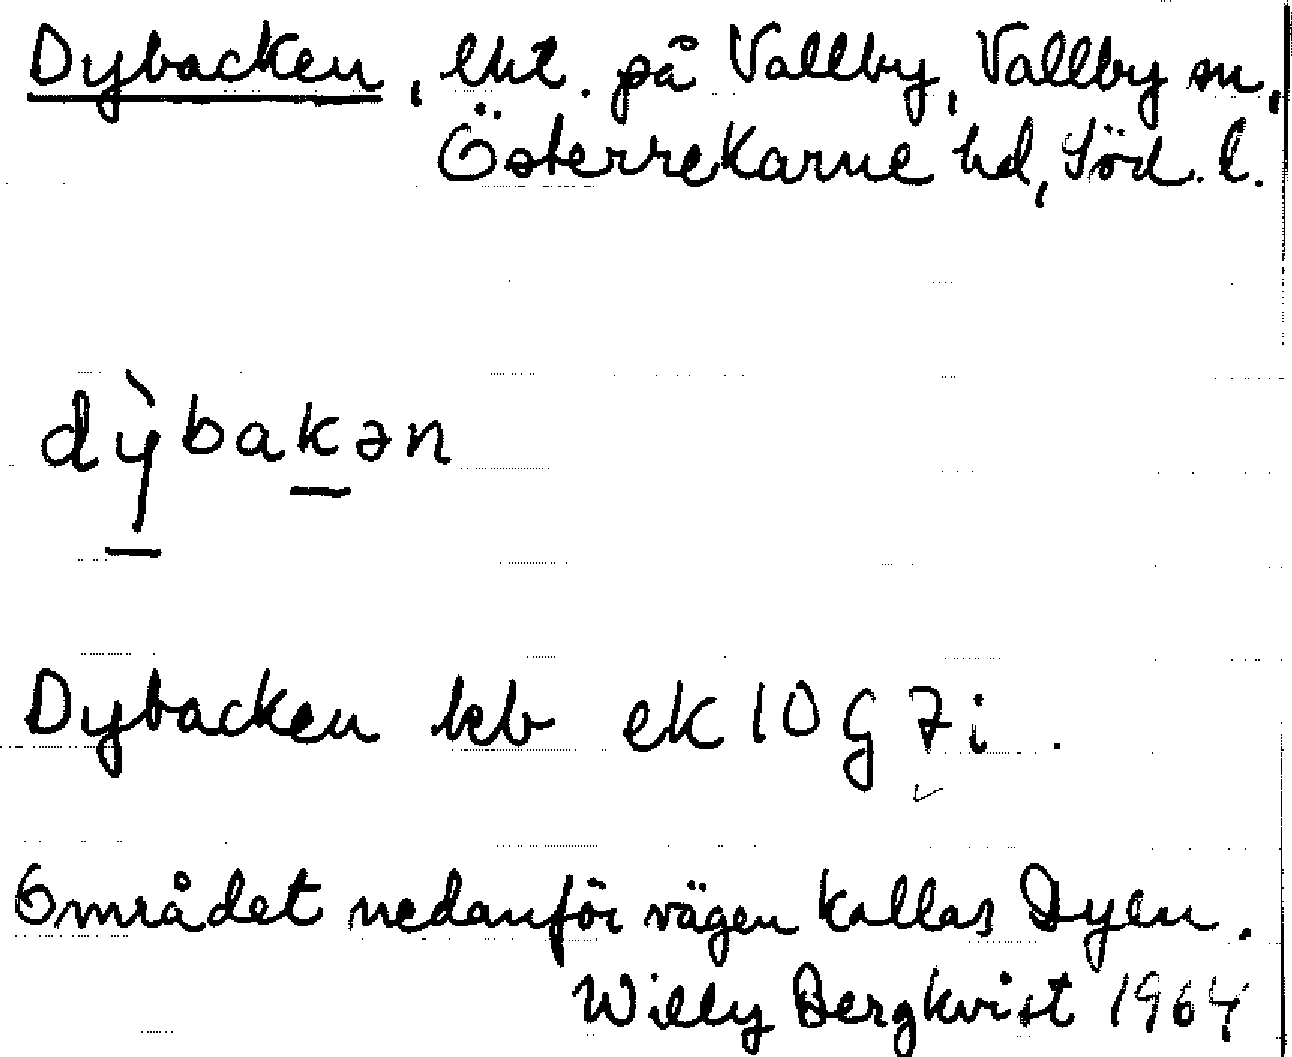 Dybacken, lht. på Vallby, Vallby sn,
Österrekarne hd, Söd. l.
dỳbakən
Dybacken beb ek 10 G 7 i.
Området nedanför vägen kallas Dyen.
Willy Bergkvist 1964